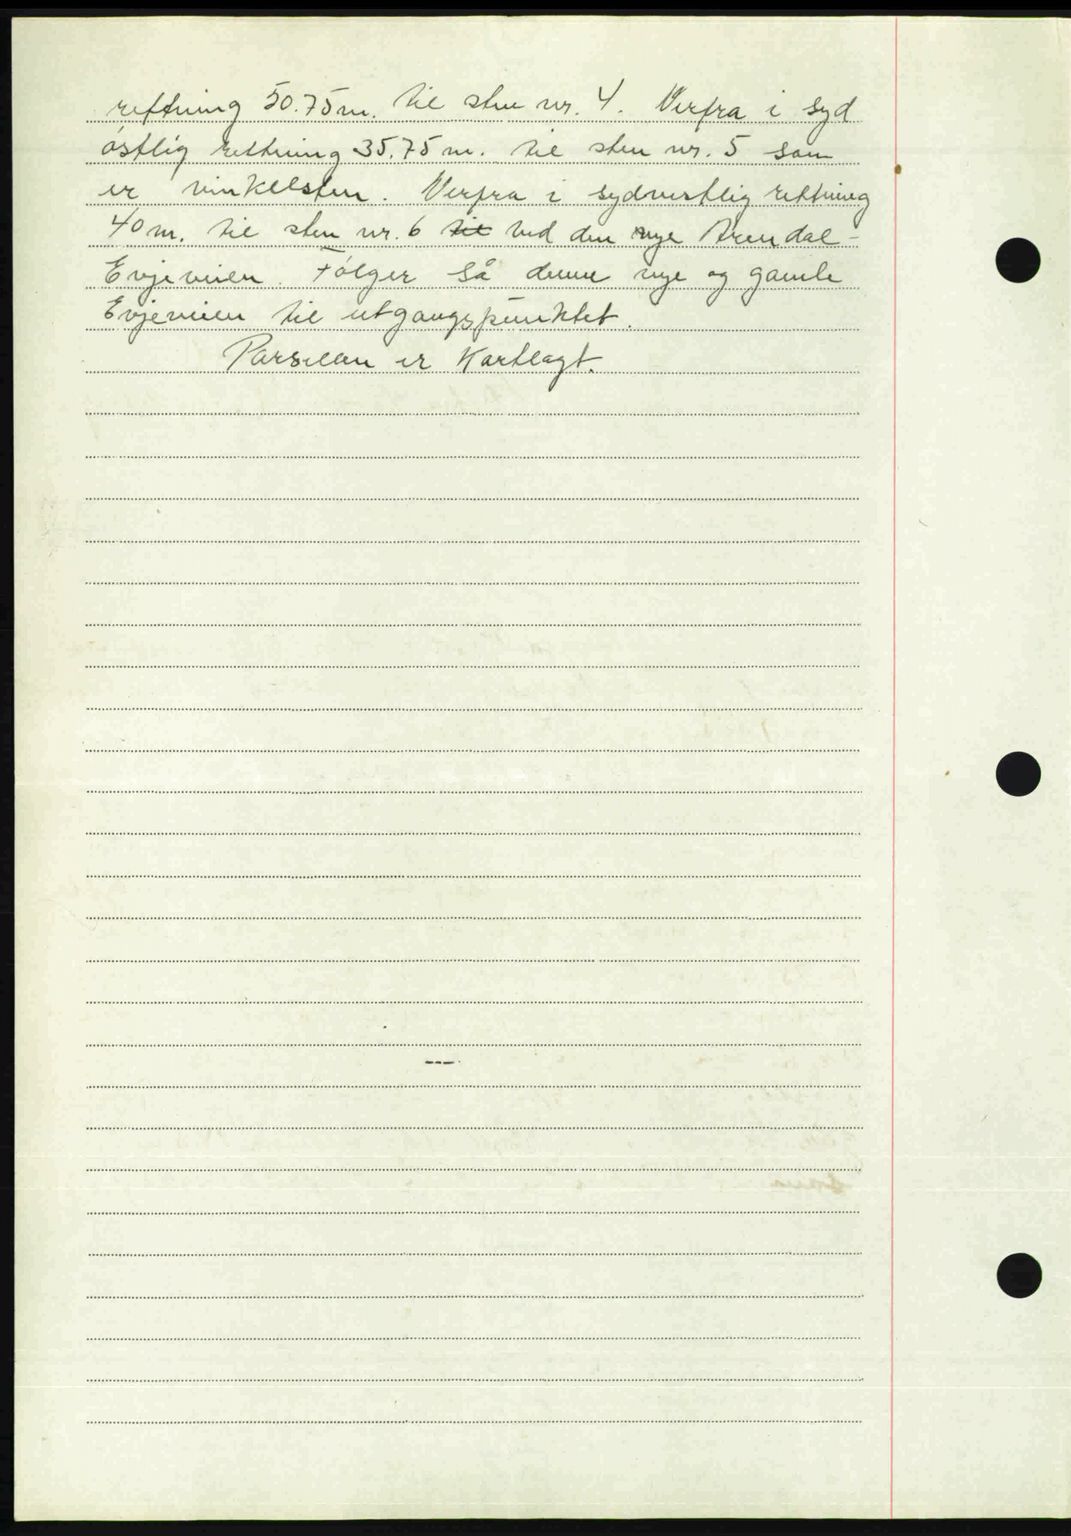 rettning 50.75 m. til sten nr. 4. Derfra i syd
östlig rettning 35.75 m. til sten nr. 5 som
er vinkelsten. Derfra i sydvestlig rettning
40 m. til sten nr. 6 til ved den nye Arendal-
Evjeveien. Følger så denne nye og gamle
Evjeveien til utgangspunktet.
Parsellen er kartlagt.